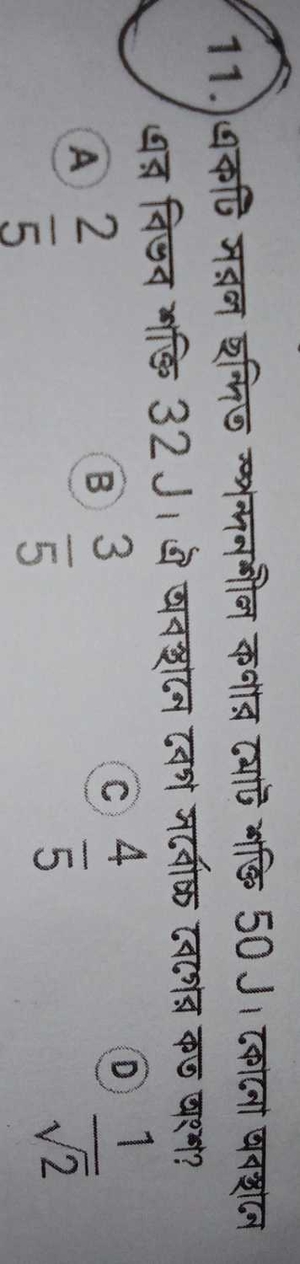 11. একটি সরল ছন্দিত স্পন্দনশীল কণার মোট শক্তি 50 J। কোনো অবস্থানে
এর বিভব শক্তি 32 J। ঐ অবস্থানে বেগ সর্বোচ্চ বেগের কত অংশ?
A 2/5 B 3/5 C 4/5 D 1/√2